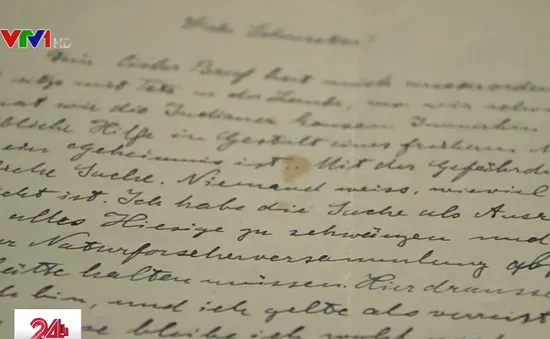 VTV1 HD
Dein lieber Brief hat mich ausserorden
sitze mit Tete in der Laube, wo wir schon
nat wie die Indianer hausen. Immerhin
bliche Hilfe in Gestalt eines früheren
ein Geheimnis ist. Mit der Gefährd
che Sache. Niemand weiss, wieviel
cht ist. Ich habe die Sache als Ausr
alles Hiesige zu schwänzen und
r Naturforscherversammlung ab
hätte halten müssen. Hier drausse
ch bin, und ich gelte als verreist
se bleibe ich wohl noch
24h